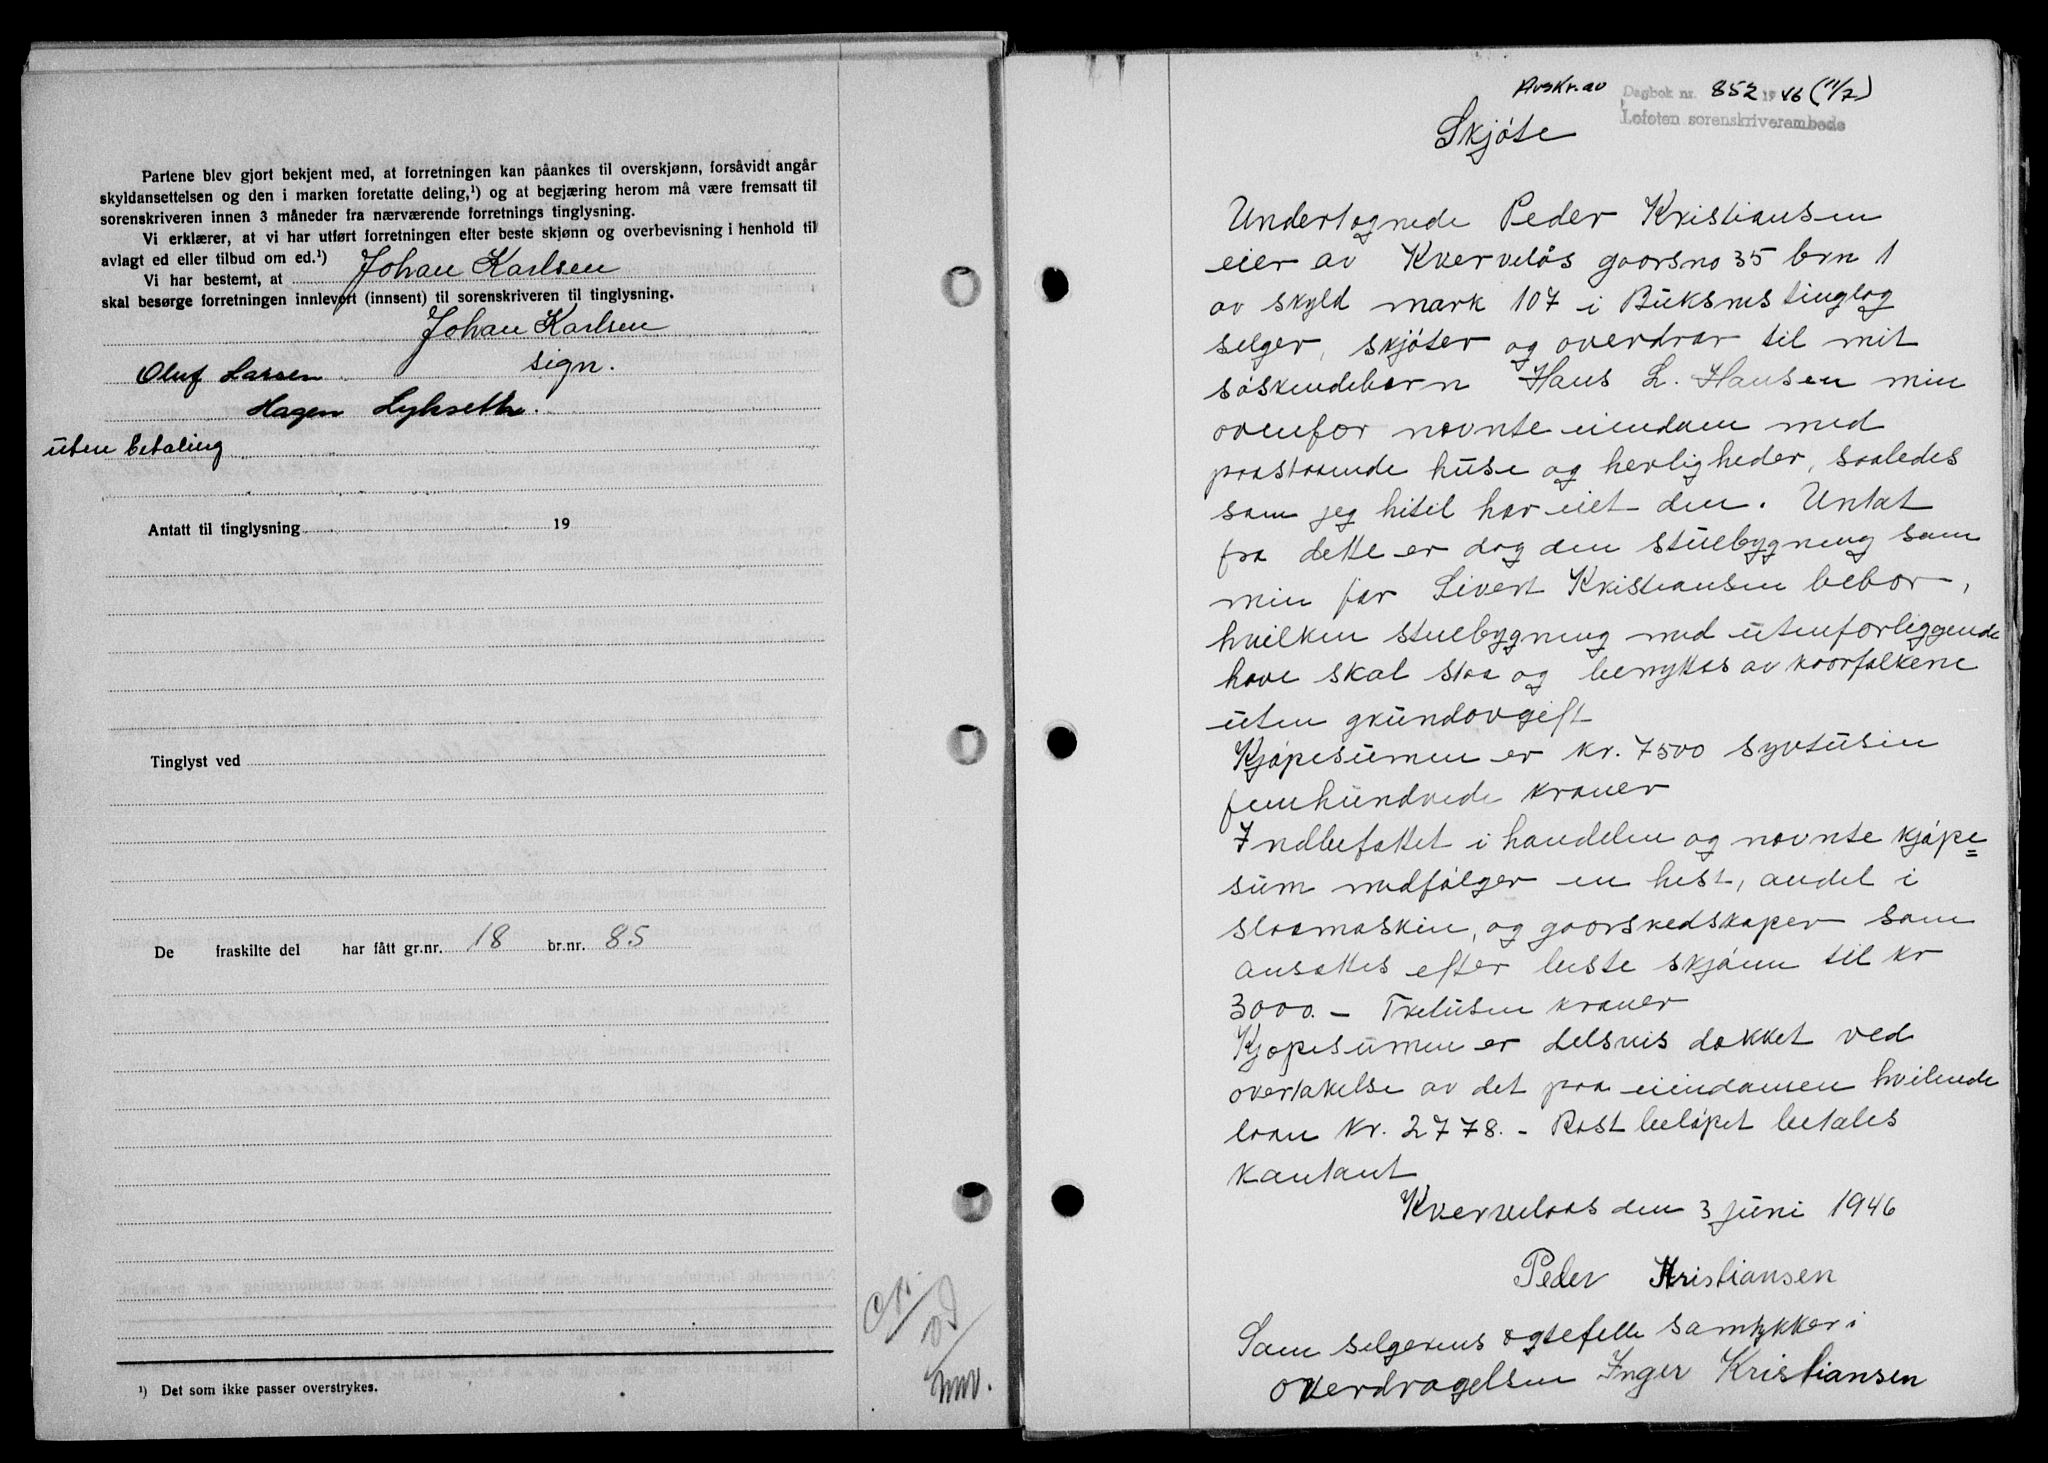 Partene blev gjort bekjent med, at forretningen kan påankes til overskjønn, forsåvidt angår
skyldansettelsen og den i marken foretatte deling,¹) og at begjæring herom må være fremsatt til
sorenskriveren innen 3 måneder fra nærværende forretnings tinglysning.
Vi erklærer, at vi har utført forretningen efter beste skjønn og overbevisning i henhold til
avlagt ed eller tilbud om ed.¹)
Vi har bestemt, at Johan Karlsen
skal besørge forretningen innlevert (innsent) til sorenskriveren til tinglysning.
Johan Karlsen
Oluf Larsen sign.
Hagen Lyhseth.
uten betaling
Antatt til tinglysning 19
Tinglyst ved
De fraskilte del har fått gr.nr. 18 br.nr. 85
¹) Det som ikke passer overstrykes.
Avskr. av Dagbok nr. 852 1946 (11/7)
Lofoten sorenskriverembede
Skjøte
Undertegnede Peder Kristiansen
eier av Kverveløs gaarsno 35 brn 1
av skyld mark 107 i Buksnes tinglag
selger, skjøter og overdrar til mit
søskendebarn Hans L. Hansen min
ovenfor nævnte eiendom med
paastaaende huse og herligheder, saaledes
som jeg hitil har eiet den. Untat
fra dette er dog den stuebygning som
min far Sivert Kristiansen bebor,
hvilken stuebygning med utenforliggende
have skal staa og benyttes av kaarfolkene
uten grundavgift
Kjøpesumen er kr. 7500 syvtusin
femhundrede kroner
Indbefattet i handelen og nævnte kjøpe=
sum medfølger en hest, andel i
slaamaskin, og gaarsredskaper som
ansættes efter beste skjønn til kr
3000. – Tretusen kroner
Kjøpesumen er delsvis dækket ved
overtakelse av det paa eiendomen hvilende
laan Kr. 2778. – Rest beløpet betales
kontant
Kvervelaas den 3 juni 1946
Peder Kristiansen
Som selgerens ægtefelle samtykker i
overdragelsen Inger Kristiansen